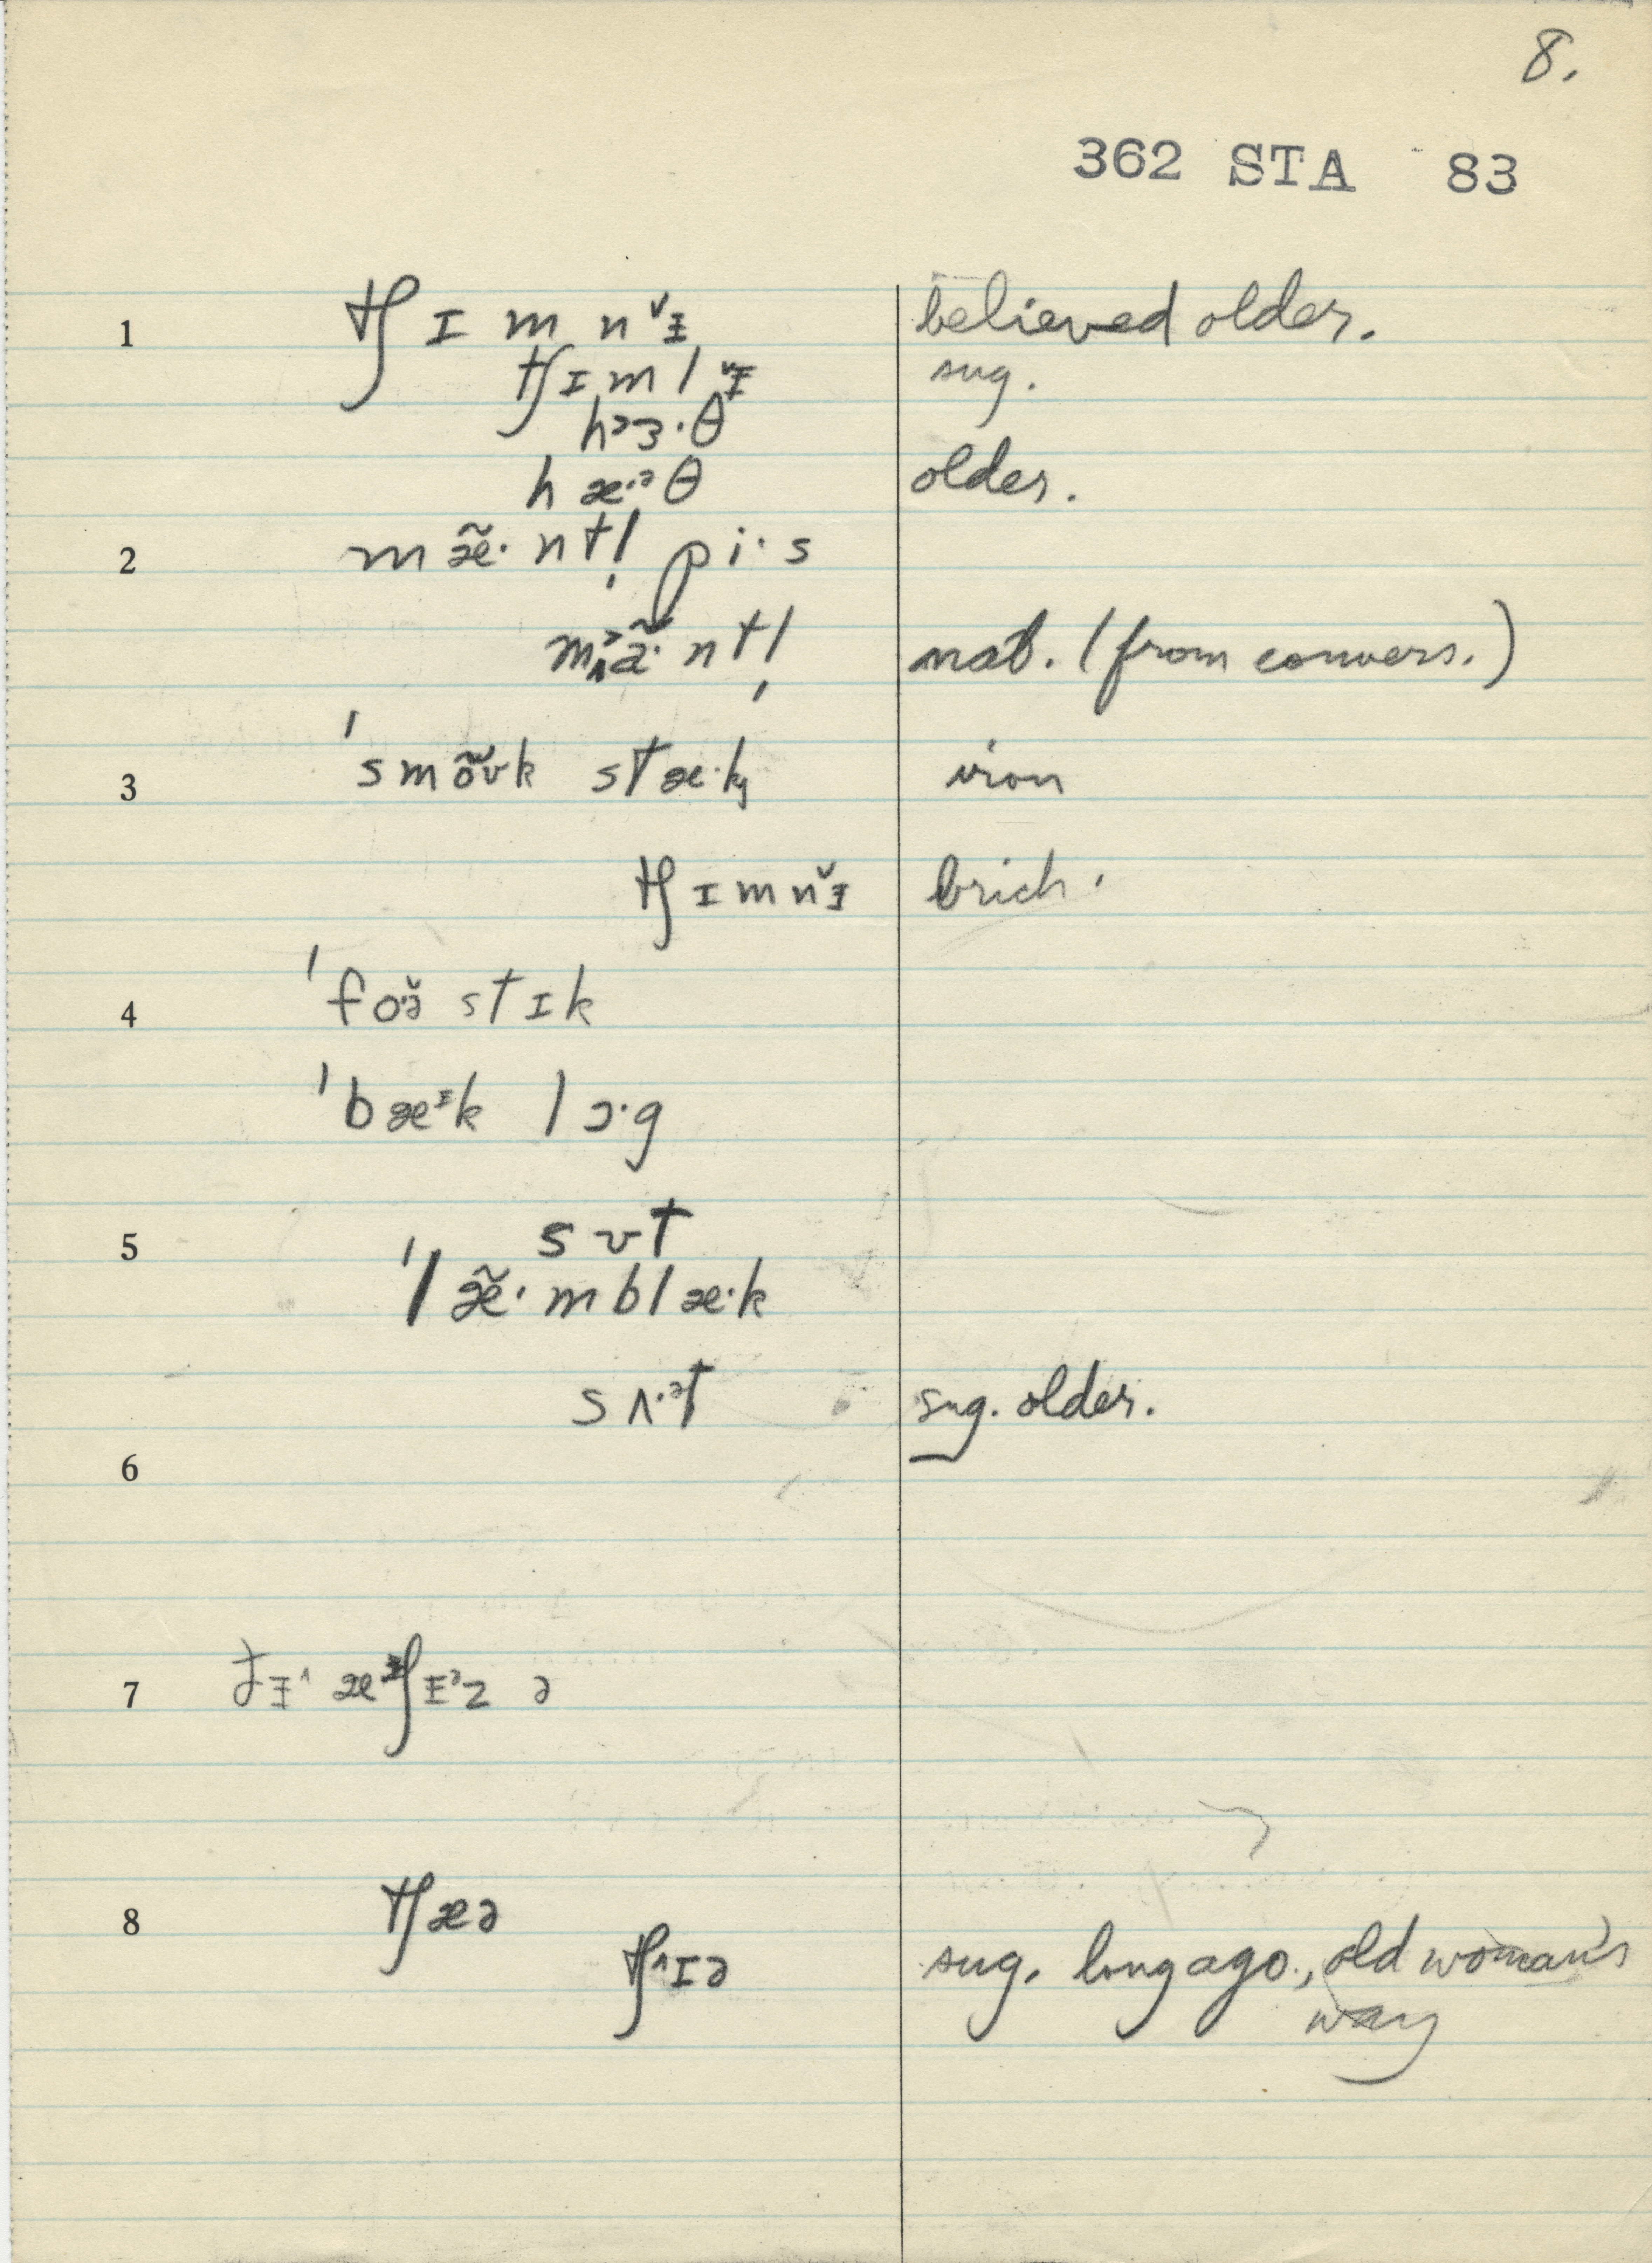 8.
362 STA 83
1 tʃ ɪ m n ˅ᵻ believed older.
tʃ ɪ m l ˅ᵻ sug.
h ɜ · θ
h æ·ᵊ θ older.
2 m æ̃· n t l̩ p i· s
n t l̩ nat. (from convers.)
3 ˈs m õʊ k s t æ· k iron
tʃ ɪ m n ˅ᵻ brick.
4 ˈf o ə̆ s t ɪ k
ˈb æᵻ k l ɔ· g
5 s ʊ t
ˈl æ̃· m b l æ· k
s ʌ·ᵊ t sug. older.
6
7 æᵻ ʃ ᵻᵊ z ə
8 tʃ æ ə
tʃ ˄ɪ ə sug. long ago, old woman's
way